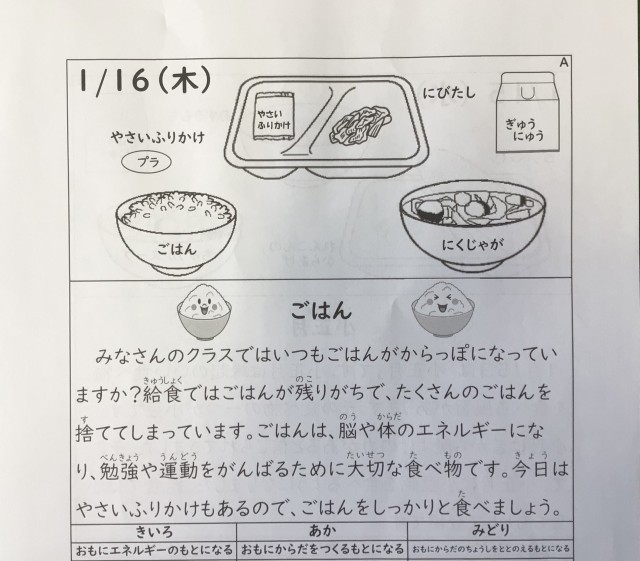 A
1/16(木)
にびたし
やさい
ふりかけ
ぎゅう
にゅう
やさいふりかけ
プラ
ごはん
にくじゃが
ごはん
みなさんのクラスではいつもごはんがからっぽになってい
ますか？給食ではごはんが残りがちで、たくさんのごはんを
捨ててしまっています。ごはんは、脳や体のエネルギーにな
り、勉強や運動をがんばるために大切な食べ物です。今日は
やさいふりかけもあるので、ごはんをしっかりと食べましょう。
きいろ あか みどり
おもにエネルギーのもとになる おもにからだをつくるもとになる おもにからだのちょうしをととのえるもとになる